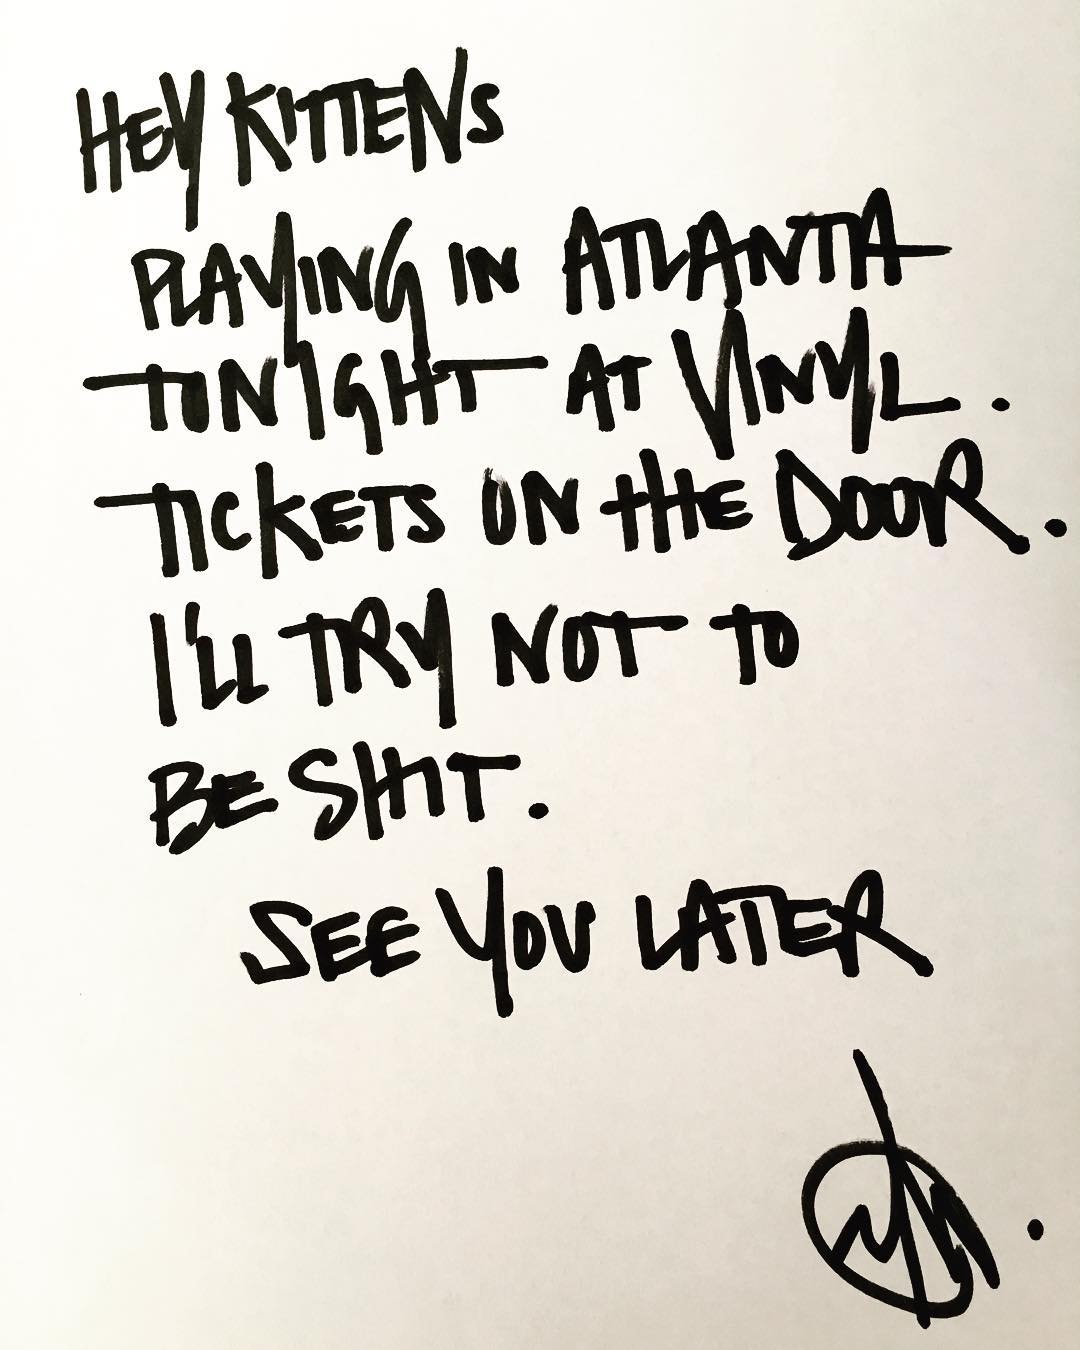 HEY KITTENS
PLAYING IN ATLANTA
TONIGHT AT VINYL.
TICKETS ON THE DOOR.
I'LL TRY NOT TO
BE SHIT.
SEE YOU LATER